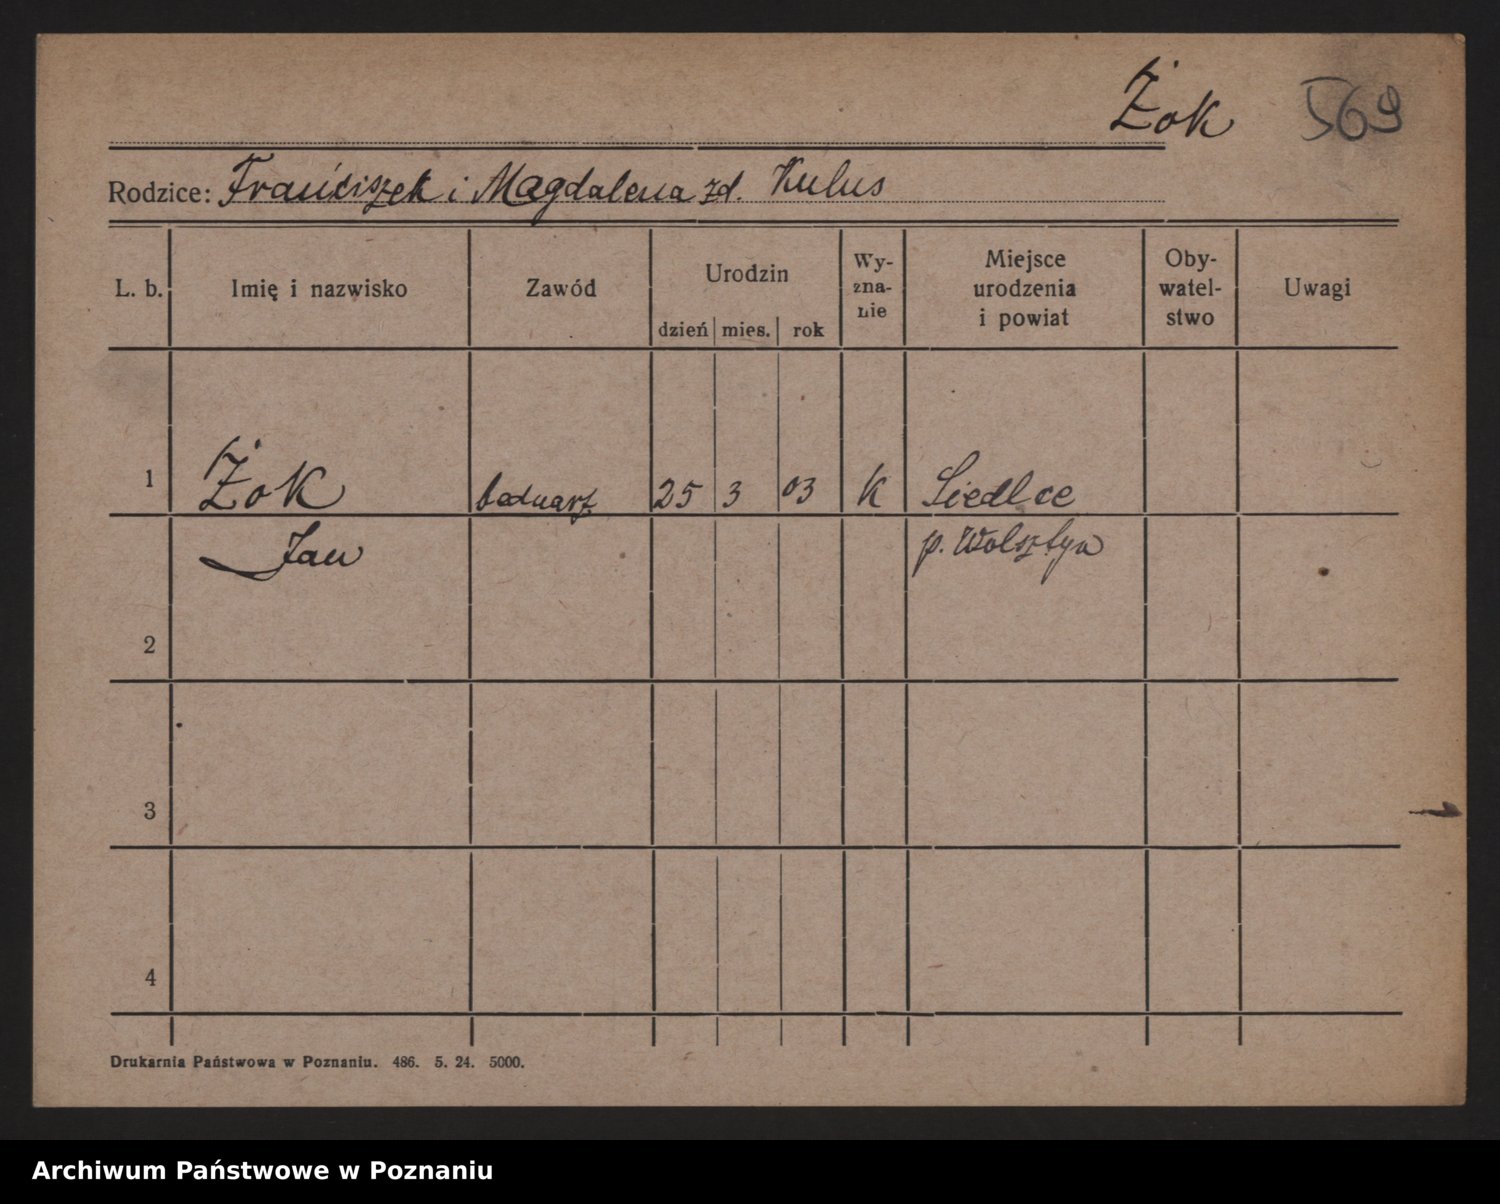 Żok 569
Rodzice: Franciszek i Magdalena zd. Kulus
L. b. Imię i nazwisko Zawód Urodzin dzień mies. rok Wy-zna-nie Miejsce urodzenia i powiat Oby-watel-stwo Uwagi
1 Żok bednarz 25 3 03 K Siedlce
Jan p. Wolsztyn
2
3
4
Drukarnia Państwowa w Poznaniu. 486. 5. 24. 5000.
Archiwum Państwowe w Poznaniu